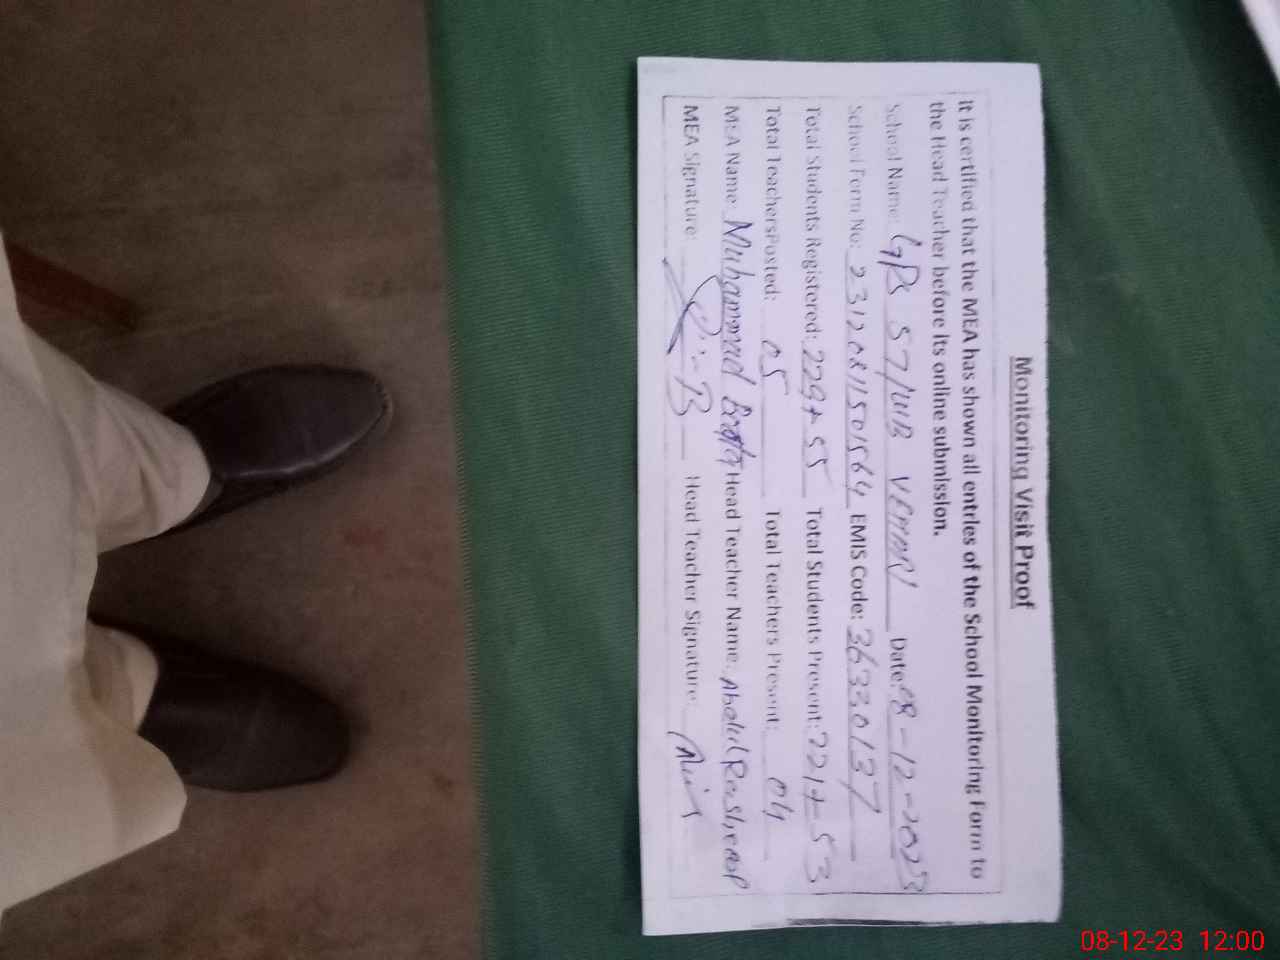 Monitoring Visit Proof
It is certified that the MEA has shown all entries of the School Monitoring Form to
the Head Teacher before its online submission.
School Name: GPS 57/WB VEHARI Date: 08-12-2023
School Form No: 2312081150564 EMIS Code: 36330137
Total Students Registered: 229+55 Total Students Present: 221+53
Total TeachersPosted: 05 Total Teachers Present: 04
MEA Name: Muhammad Head Teacher Name: Abdul Rasheed
MEA Signature: Head Teacher Signature:
08-12-23 12:00